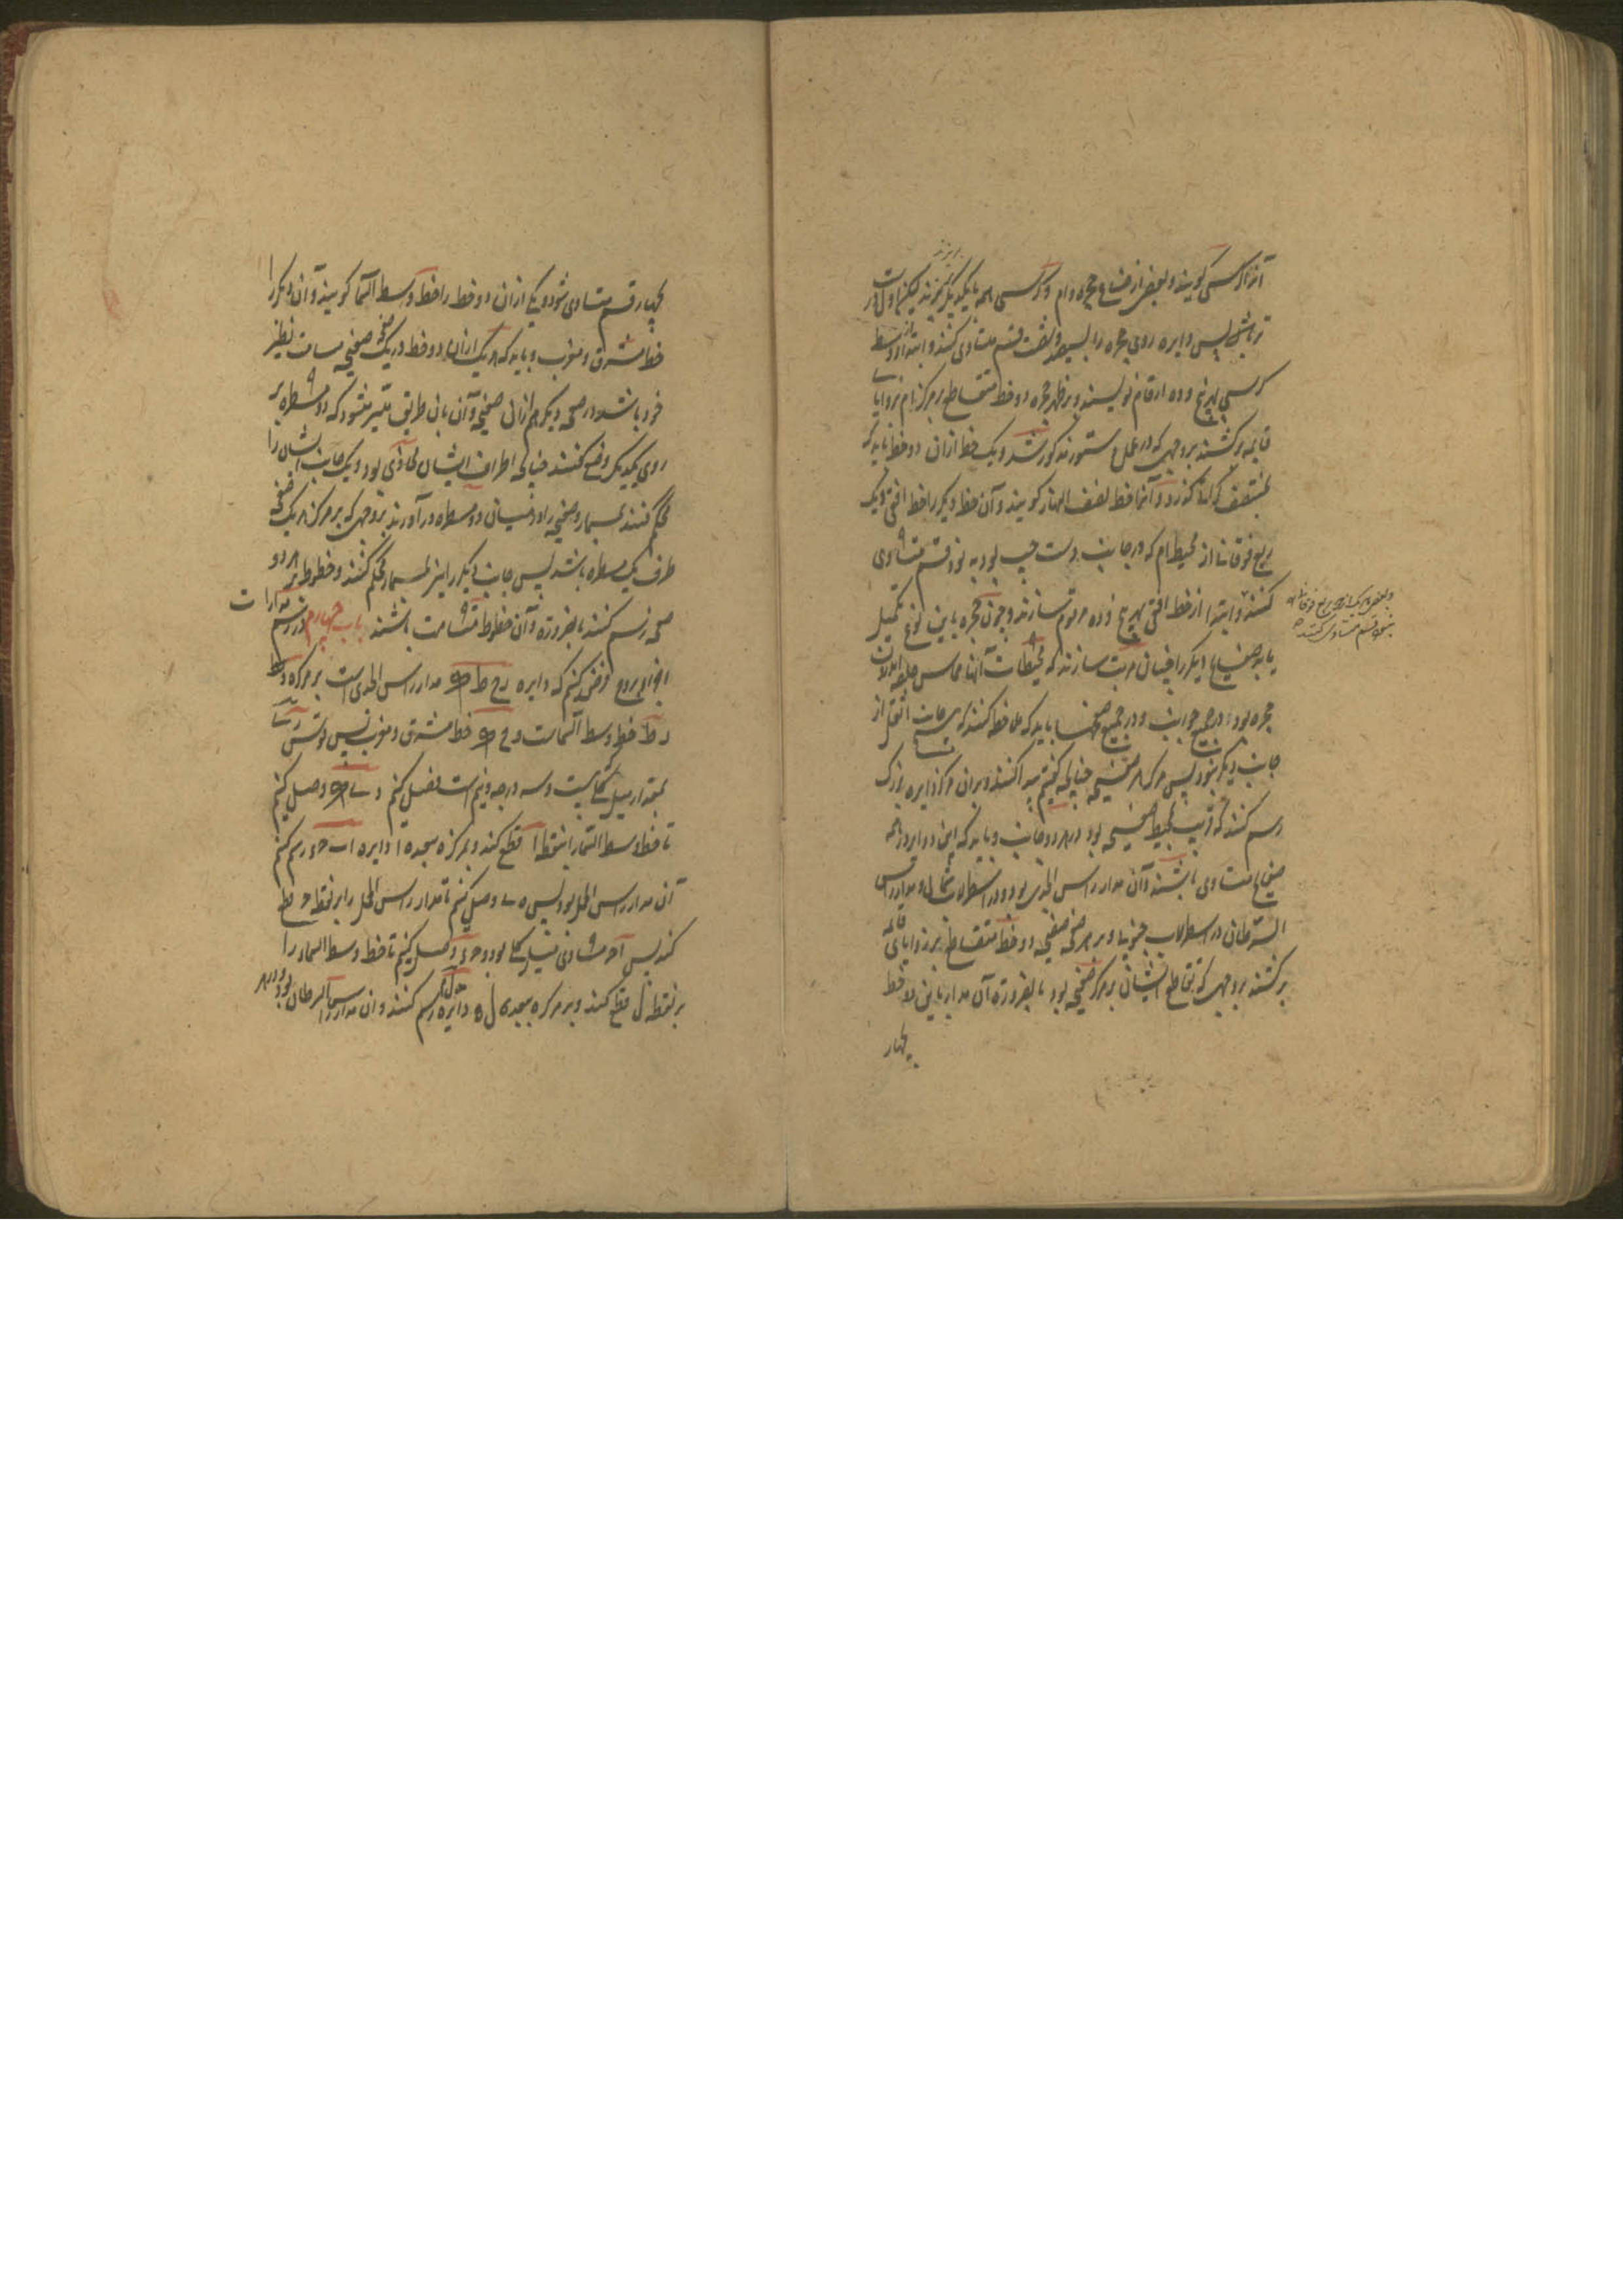 آنرا کرسی کویند و بعضی از صناع حجره و ام و کرسی همه بایکدیکر بریزند لیکن اول
ریزند
پس دایره روی حجره را بسیصد و شصت قسم متساوی کنند و ابتدا از وسط
کرسی پنج و ده ارقام نویسند و بر ظهر حجره دو خط متقاطع بر مرکز ام بزوایا
قایمه بکشند بر وجهی که در عمل مذکور شد و یک خط ازان دو خط باید که
بمنتصف کرسی کذرد و آنرا خط نصف النهار کویند و آن خط دیکر را خط افق و یک
ربع فوقانی از محیط ام که در جانب دست چپ بود به نود قسم متساوی
کنند و ابتدا از خط افق پنج و ده مرقوم سازند و چون حجره باین نوع تکمیل
و بعضی هر یک از دو ربع فوقانی
بنود قسم متساوی کنند
یابد صفایح دیکر را چنان مرتب سازند که محیطات آنها مماس حلقه
حجره بود در جمیع جوانب و در جمیع صفحها باید که ملاحظه کنند که جانب اثقل از
جانب دیکر نبود پس مرکز هر صفیحه چنانچه کفتیم پیدا کنند و بران مرکز دایره بزرک
رسم کنند که قریب بمحیط صفیحه بود در هر دو جانب و باید که این دوایر در همه
صفایح متساوی باشند و آن مدار راس الجدی بود در اسطرلاب شمالی و مدار راس
السرطان در اسطرلاب جنوبی و بر هر صفحه صفیحه دو خط متقاطع بر زوایای قایمه
بکشند بر وجهی که تقاطع ایشان بر مرکز صفیحه بود بالضروره آن مدار باین دو خط
بچهار
بچهار قسم متساوی شود و یکی ازان دو خط را خط وسط السما کویند و آن دیکر را
خط مشرق و مغرب و باید که هر یک ازان دو خط در یک صفحه صفیحه مسامت نظیر
خود باشد در صفحه دیکر هم ازان صفیحه و آن بان طریق متیسر میشود که دو مسطره بر
روی یکدیکر وضع کنند چنانچه اطراف ایشان محاذی بود و یک جانب ایشان را
محکم کنند بمسمار و صفیحه را در میان دو مسطره در آورند بر وجهی که بر مرکز هر یک صفحه
طرف یک مسطره باشد پس جانب دیکر را نیز بمسمار محکم کنند و خطوط بر هر دو
صفحه رسم کنند بالضروره آن خطوط متسامت باشند باب چهارم در رسم مدارات
فرض کنیم که دایره ح ط مدار راس الجدی است بر مرکز ه و
ط خط وسط السماست و خط مشرق و مغرب پس قوس
بمقدار میل کلی که بیست و سه درجه و نیم است فصل کنیم و وصل کنیم
تا خط وسط السما را بنقطه ا قطع کند و بمرکز ه ببعد ه ا دایره ا ب ح د رسم کنیم
آن مدار راس الحمل بود پس ه وصل کنیم تا مدار راس الحمل را بر نقطه قطع
کند پس مساوی میل کلی بود و وصل کنیم تا خط وسط السماء را
بر نقطه ل قطع کند و بر مرکز ه ببعد ه ل دایره رسم کنند و ان مدار راس السرطان بود و در